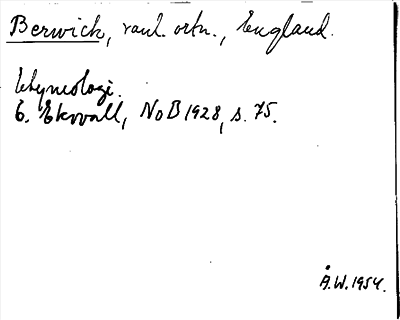 Berwick, vanl. ortn., England.
Etymologi.
E. Ekwall, NoB 1928, s. 75.
Å.W. 1954.